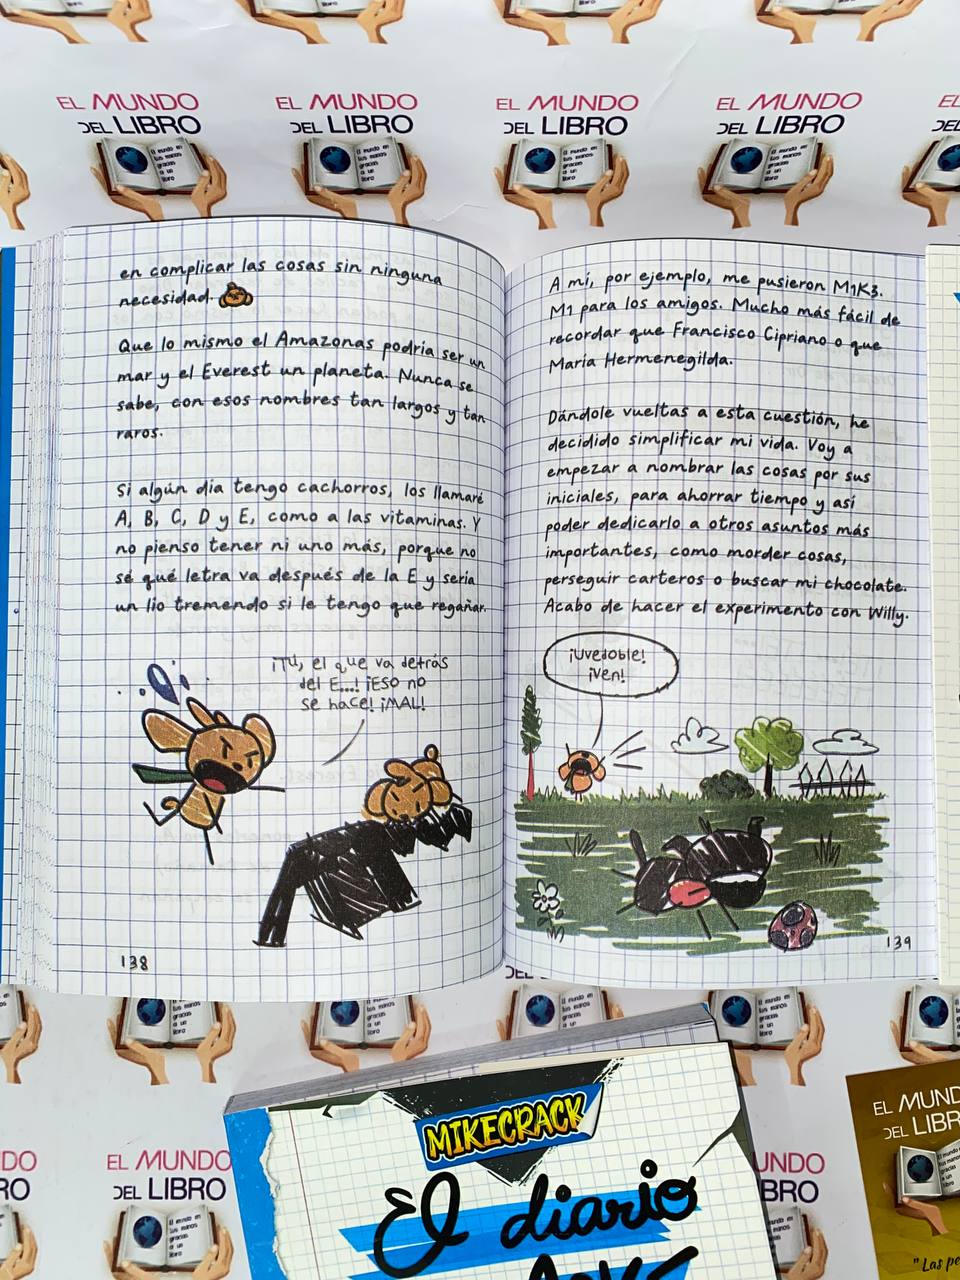 EL MUNDO
DEL LIBRO
El mundo en
tus manos
gracias
a un
libro
en complicar las cosas sin ninguna
necesidad.
Que lo mismo el Amazonas podría ser un
mar y el Everest un planeta. Nunca se
sabe, con esos nombres tan largos y tan
raros.
Si algún día tengo cachorros, los llamaré
A, B, C, D y E, como a las vitaminas. Y
no pienso tener ni uno más, porque no
sé qué letra va después de la E y sería
un lío tremendo si le tengo que regañar.
¡TÚ, el que va detrás
del E...! ¡ESO no
se hace! ¡MAL!
138
A mí, por ejemplo, me pusieron M1K3.
M1 para los amigos. Mucho más fácil de
recordar que Francisco Cipriano o que
María Hermenegilda.
Dándole vueltas a esta cuestión, he
decidido simplificar mi vida. Voy a
empezar a nombrar las cosas por sus
iniciales, para ahorrar tiempo y así
poder dedicarlo a otros asuntos más
importantes, como morder cosas,
perseguir carteros o buscar mi chocolate.
Acabo de hacer el experimento con Willy.
¡Uvedoble!
¡Ven!
139
MIKECRACK
El diario
EL MUND
DEL LIBR
"Las pe